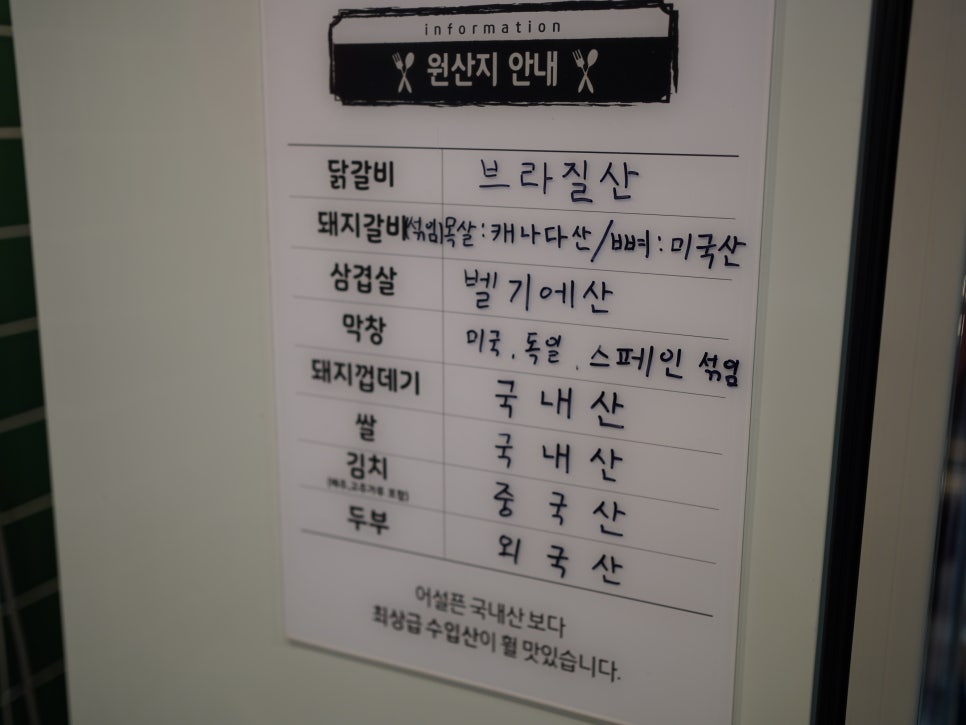 information
원산지 안내
닭갈비 브라질산
돼지갈비(섞임) 목살:캐나다산/뼈:미국산
삼겹살 벨기에산
막창 미국, 독일, 스페인 섞임
돼지껍데기 국내산
쌀 국내산
김치 중국산
(배추,고추가루 포함)
두부 외국산
어설픈 국내산 보다
최상급 수입산이 훨 맛있습니다.